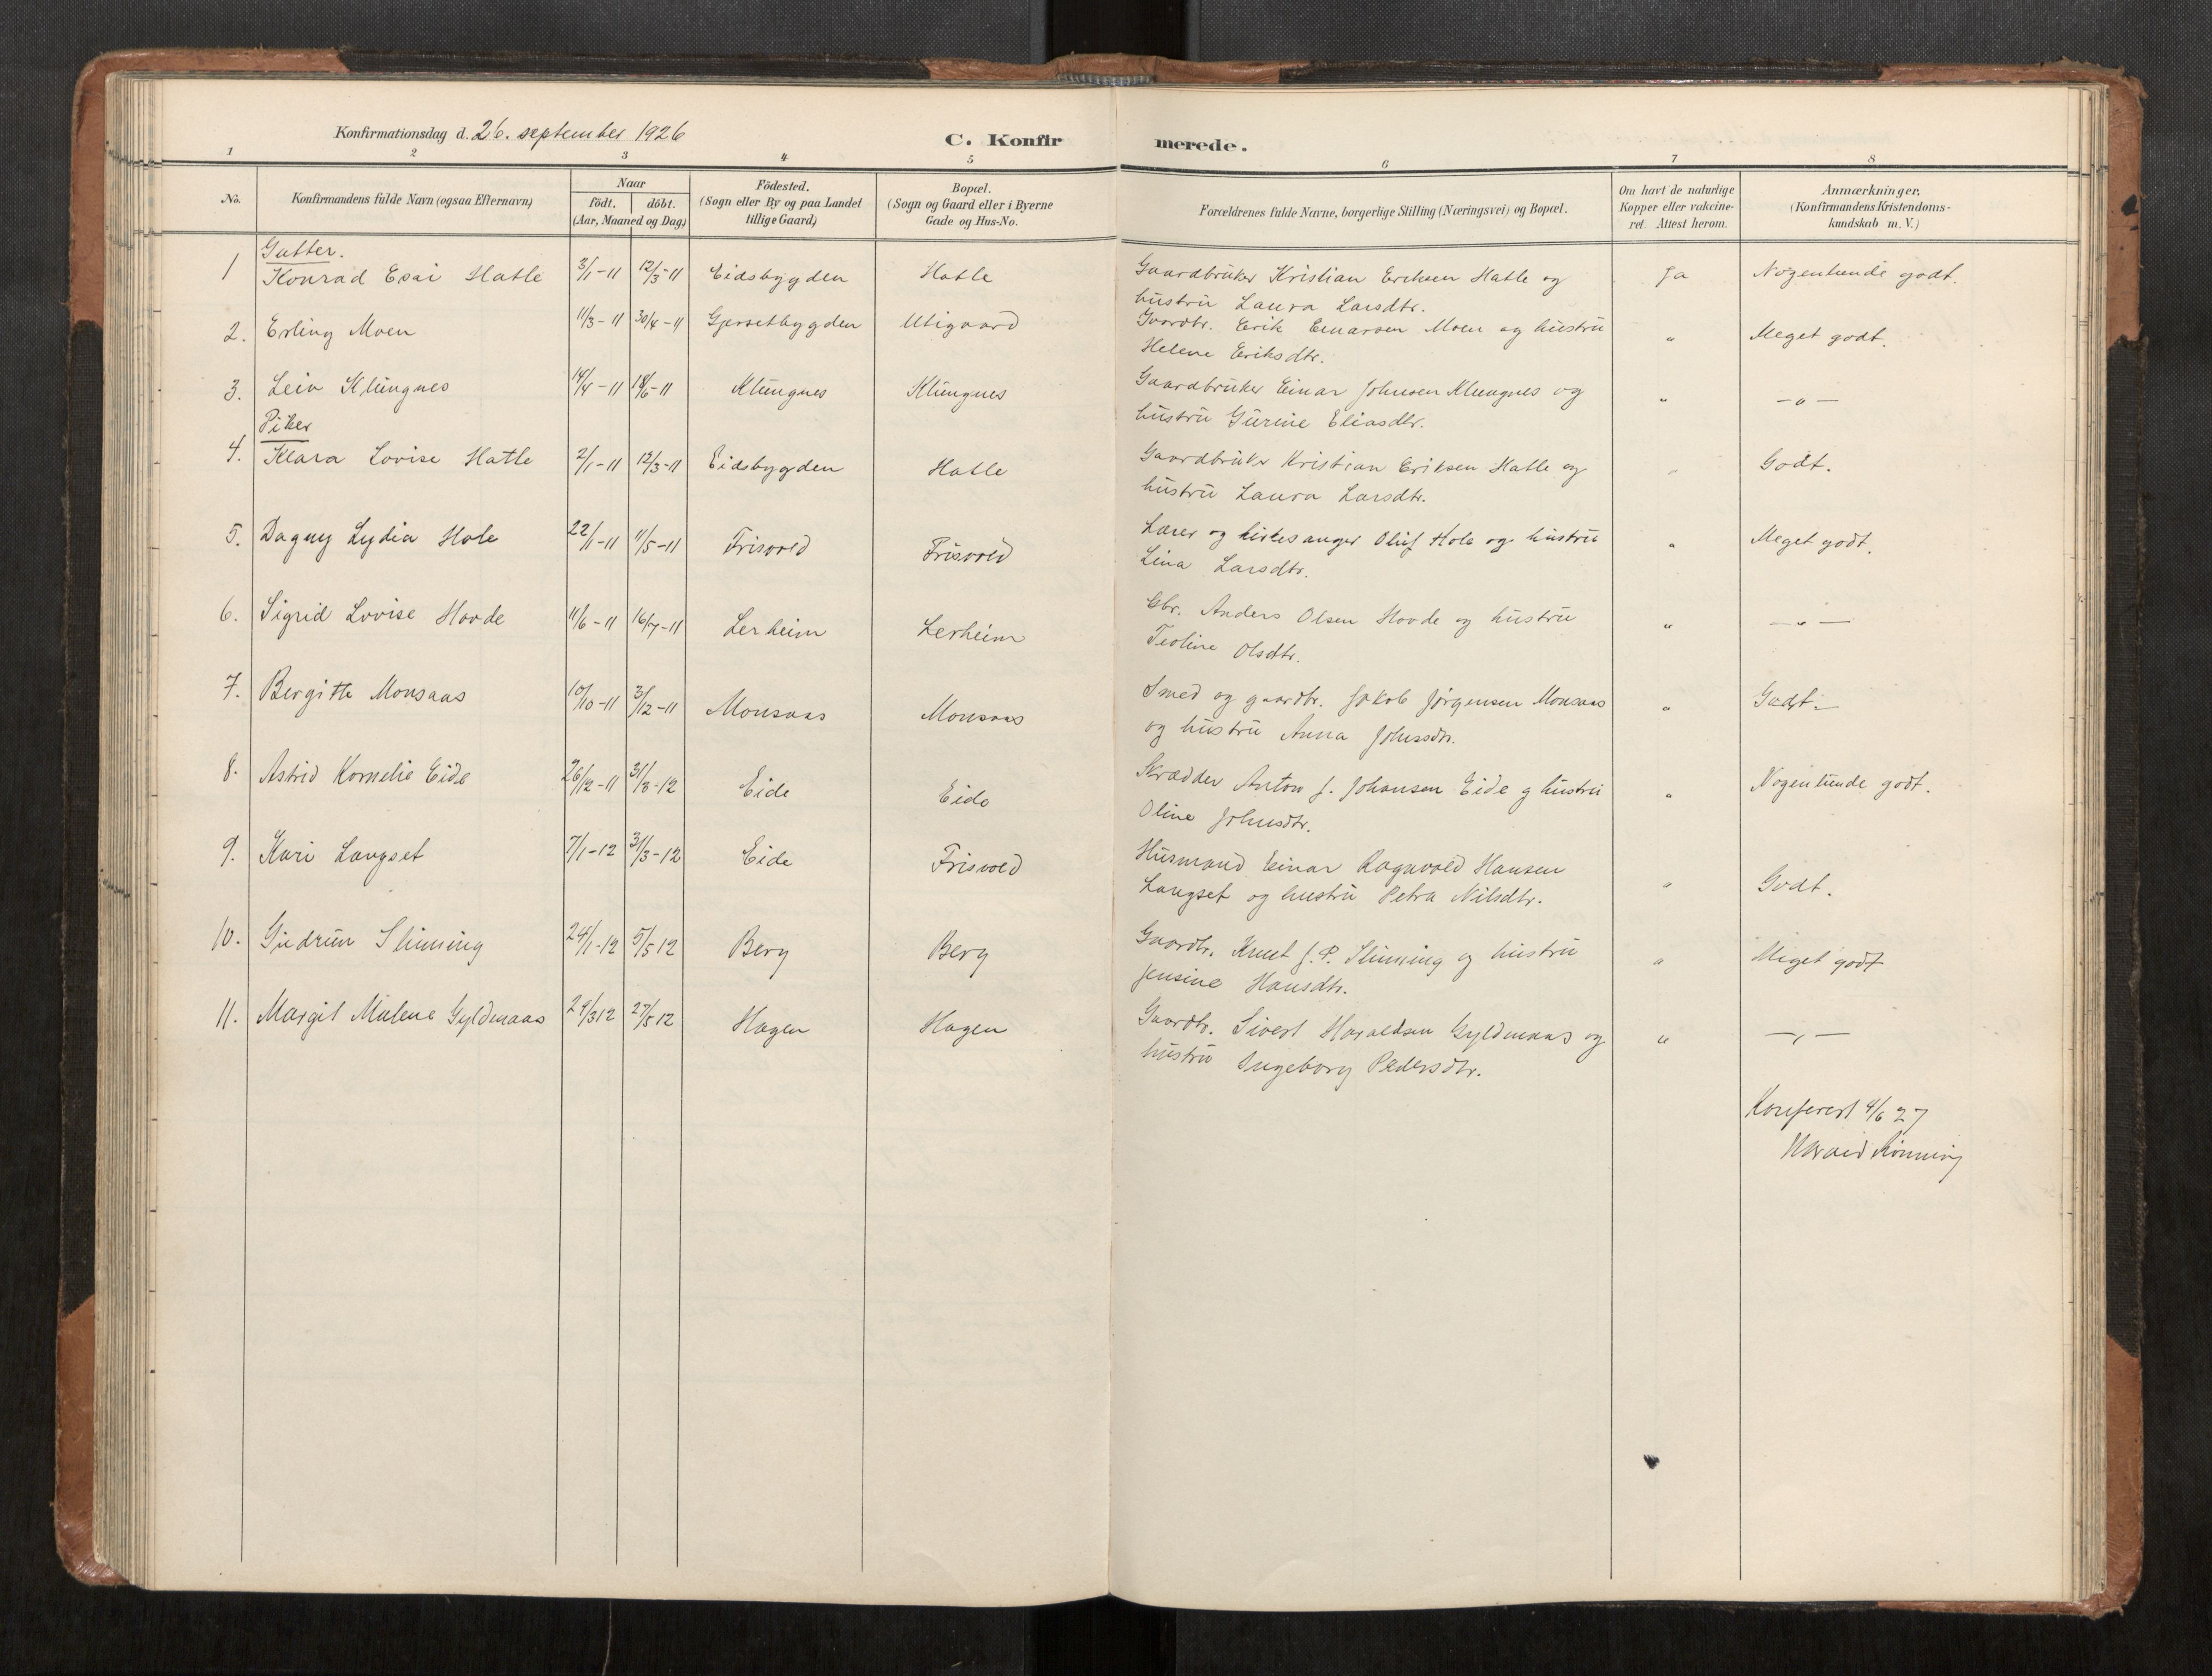 Konfirmationsdag d. 26. september 1926
C. Konfirmerede.
1 2 3 4 5 6 7 8
No.
Konfirmandens fulde Navn (ogsaa Efternavn)
Naar
födt. döbt.
(Aar, Maaned og Dag)
Födested.
(Sogn eller By og paa Landet
tillige Gaard)
Bopæl.
(Sogn og Gaard eller i Byerne
Gade og Hus-No.
Forældrenes fulde Navne, borgerlige Stilling (Næringsvei) og Bopæl.
Om havt de naturlige
Kopper eller vakcine-
ret. Attest herom.
Anmærkninger.
(Konfirmandens Kristendoms-
kundskab m. V.)
Gutter.
1 Konrad Esai Hatle 3/1-11 12/3-11 Eidsbygden Hatle Gaardbruker Kristian Eriksen Hatle og Ja Nogenlunde godt.
hustru Laura Larsdtr.
2. Erling Moen 11/3-11 30/4-11 Gjersetbygden Utigaard Gaardbr. Erik Einarsen Moen og hustru " Meget godt.
Helene Eriksdtr.
3. Leiv Klungnes 14/4-11 18/6-11 Klungnes Klungnes Gaardbruker Einar Johnsen Klungnes og " -"-
hustru Gurine Eliasdtr.
Piker
4. Klara Lovise Hatle 2/1-11 12/3-11 Eidsbygden Hatle Gaardbruker Kristian Eriksen Hatle og " Godt.
hustru Laura Larsdtr.
5. Dagny Lydia Hole 22/1-11 11/5-11 Frisvold Frisvold Lærer og kirkesanger Oluf Hole og hustru " Meget godt.
Lina Larsdtr.
6. Sigrid Lovise Hovde 11/6-11 16/7-11 Lerheim Lerheim Gbr. Anders Olsen Hovde og hustru " -"-
Teoline Olsdtr.
7. Bergitte Monsaas 10/10-11 3/12-11 Monsaas Monsaas Smed og gaardbr. Jakob Jørgensen Monsaas " Godt.
og hustru Anna Johnsdtr.
8. Astrid Kornelie Eide 26/12-11 31/3-12 Eide Eide Skrædder Anton J. Johansen Eide og hustru " Nogenlunde godt.
Oline Johnsdtr.
9. Kari Langset 7/1-12 31/3-12 Eide Frisvold Husmand Einar Ragnvald Hansen
Langset og hustru Petra Nilsdtr. " Godt.
10. Gudrun Slinning 24/1-12 5/5 12 Berg Berg Gaardbr. Knut J. P. Slinning og hustru " Meget godt
Jensine Hansdtr.
11. Margit Malene Gyldenaas 29/3 12 27/5 12 Hagen Hagen Gaardbr. Sivert Haraldsen Gyldenaas og " -"-
hustru Ingeborg Pedersdtr.
Konferert 4/6 27
Harald Rønning